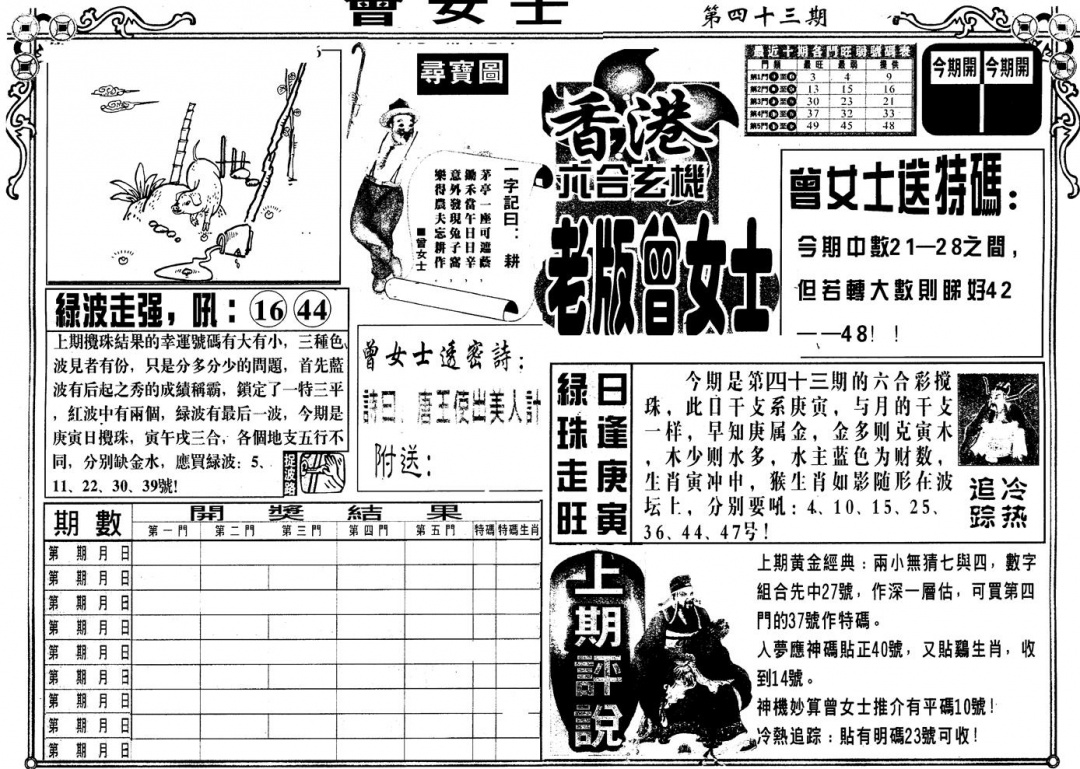 曾女士
第四十三期
尋寶圖
一字記曰：耕
茅亭一座可遮蔭
鋤禾當午日日辛
意外發現兔子窩
樂得農夫忘耕作
■曾女士
香港
六合玄機
老版曾女士
最近十期各門旺弱號碼表
門類 最旺 最弱 提供
第1門 3 4 9
第2門 13 15 16
第3門 30 23 21
第4門 37 32 33
第5門 49 45 48
今期開
今期開
曾女士送特碼：
今期中數21—28之間，
但若轉大數則睇好42
——48！！
綠波走强，吼：16 44
上期攪珠結果的幸運號碼有大有小，三種色
波見者有份，只是分多分少的問題，首先藍
波有后起之秀的成績稱霸，鎖定了一特三平
，紅波中有兩個，緑波有最后一波，今期是
庚寅日攪珠，寅午戌三合，各個地支五行不
同，分别缺金水，應買緑波：5、
11、22、30、39號!
捉波路
曾女士透密詩：
詩曰：唐王使出美人計
附送：
綠珠走旺
日逢庚寅
今期是第四十三期的六合彩搅
珠，此日干支系庚寅，与月的干支
一样，早知庚属金，金多则克寅木
，木少则水多，水主蓝色为财数，
生肖寅冲申，猴生肖如影随形在波
坛上，分别要吼：4、10、15、25、
36、44、47号!
冷热
追踪
期數
開獎結果
第一門 第二門 第三門 第四門 第五門 特碼 特碼生肖
第 期 月 日
第 期 月 日
第 期 月 日
第 期 月 日
第 期 月 日
第 期 月 日
第 期 月 日
第 期 月 日
第 期 月 日
上期評說
上期黄金經典：兩小無猜七與四，數字
組合先中27號，作深一層估，可買第四
門的37號作特碼。
人夢應神碼貼正40號，又貼鷄生肖，收
到14號。
神機妙算曾女士推介有平碼10號!
冷熱追踪：貼有明碼23號可收!